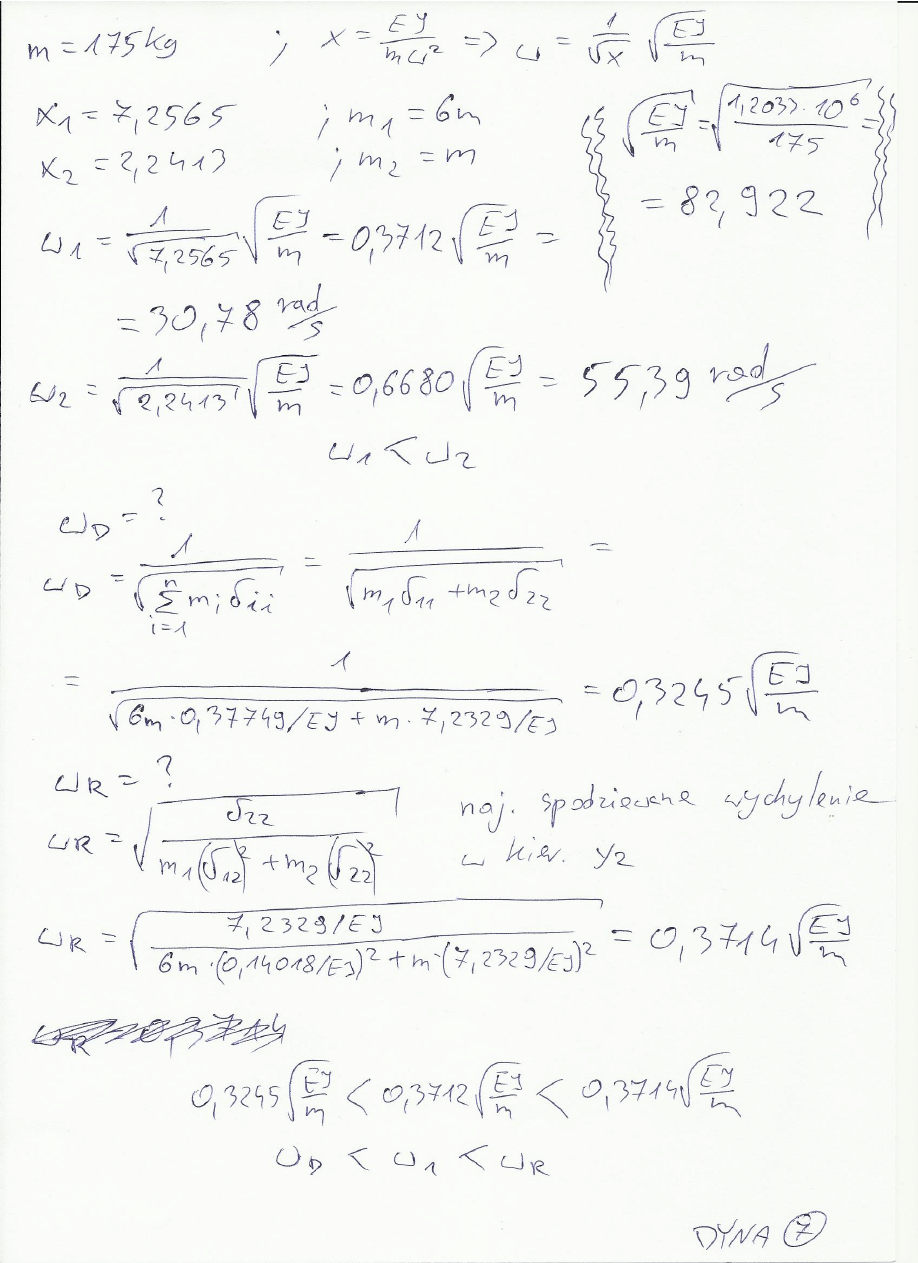 m = 175kg ; x = EJ/mω² => ω = 1/√x √(EJ/m)
x₁ = 7,2565 ; m₁ = 6m
x₂ = 2,2413 ; m₂ = m
√(EJ/m) = √(1,2033·10⁶/175) =
= 82,922
ω₁ = 1/√7,2565 √(EJ/m) = 0,3712 √(EJ/m) =
= 30,78 rad/s
ω₂ = 1/√2,2413 √(EJ/m) = 0,6680 √(EJ/m) = 55,39 rad/s
ω₁ < ω₂
ω_D = ?
ω_D = 1/√(Σ_{i=1}^{n} m_i δ_ii) = 1/√(m₁δ₁₁ + m₂δ₂₂) =
= 1/√(6m·0,37749/EJ + m·7,2329/EJ) = 0,3245 √(EJ/m)
ω_R = ?
ω_R = √(δ₂₂/(m₁(δ₁₂)² + m₂(δ₂₂)²)) naj. spodziewane wychylenie
w kier. y₂
ω_R = √((7,2329/EJ)/(6m·(0,14018/EJ)² + m·(7,2329/EJ)²)) = 0,3714 √(EJ/m)
0,3245 √(EJ/m) < 0,3712 √(EJ/m) < 0,3714 √(EJ/m)
ω_D < ω₁ < ω_R
DYNA ⑦